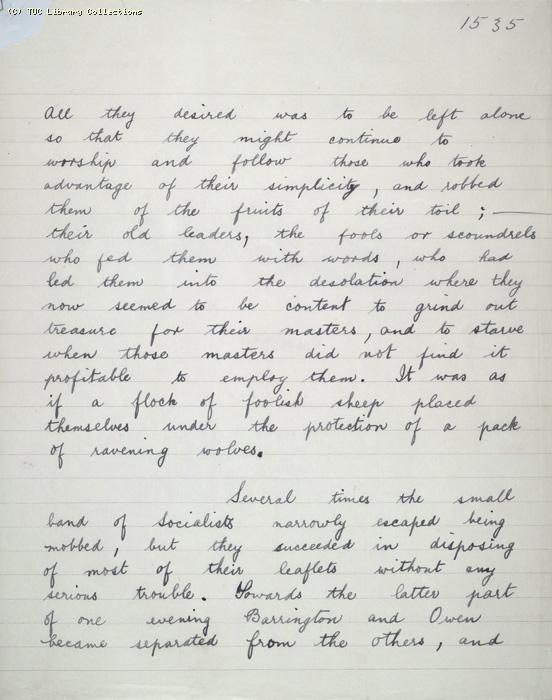 (C) TUC Library Collections
1535
All they desired was to be left alone
so that they might continue to
worship and follow those who took
advantage of their simplicity, and robbed
them of the fruits of their toil; —
their old leaders, the fools or scoundrels
who fed them with words, who had
led them into the desolation where they
now seemed to be content to grind out
treasure for their masters, and to starve
when those masters did not find it
profitable to employ them. It was as
if a flock of foolish sheep placed
themselves under the protection of a pack
of ravening wolves.
Several times the small
band of Socialists narrowly escaped being
mobbed, but they succeeded in disposing
of most of their leaflets without any
serious trouble. Towards the latter part
of one evening Barrington and Owen
became separated from the others, and